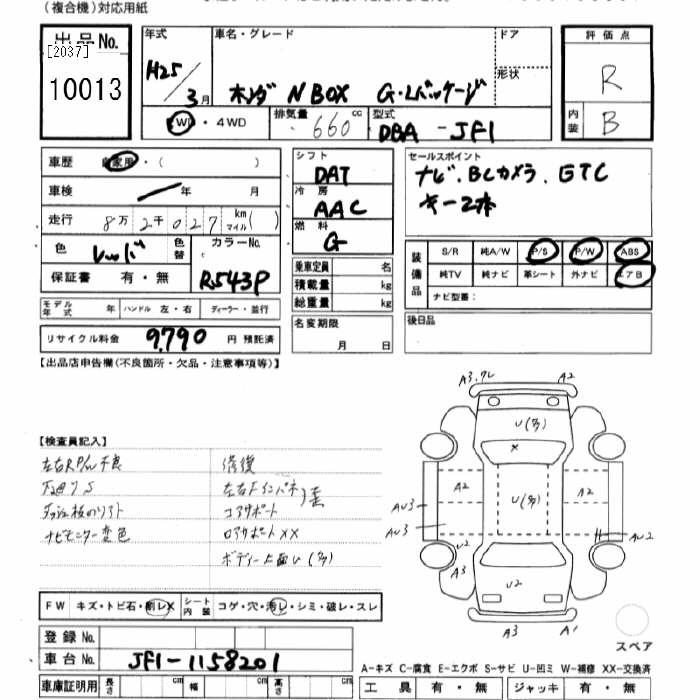 (複合機)対応用紙
出品No.
[2037]
10013
年式
H25/3月
車名・グレード
ホンダ N BOX G・Lパッケージ
ドア
形状
2WD・4WD
排気量 660 cc
型式
DBA - JF1
評価点
R
内装 B
車歴 自家用・( )
車検 年 月
走行 8万2千027 km マイル( )
色 レッド 色替
カラーNo.
R543P
保証書 有・無
モデル年式 年 ハンドル 左・右 ディーラー・並行
リサイクル料金 9,790 円 預託済
シフト
DAT
冷房
AAC
燃料
G
乗車定員 名
積載量 kg
総重量 kg
名変期限
月 日
セールスポイント
ナビ.BCカメラ.ETC
キー2本
装備品
S/R 純A/W P/S P/W ABS
純TV 純ナビ 革シート 外ナビ エアB
ナビ型番:
後日品
【出品店申告欄(不良箇所・欠品・注意事項等)】
【検査員記入】
左右RP/W不良
ナビモニター変色
修復
左右Fインパネ
コアサポート
ロアサポートXX
ボディー上面U(多)
FW キズ・トビ石・割レX
シート内装 コゲ・穴・汚レ・シミ・破レ・スレ
登録No.
車台No. JF1-1158201
車庫証明用 長さ cm 幅 cm 高さ cm
A3.ワレ A2
U(多)
X
A2 U(多) A2
AU3
AU3
U2
A3
AU2
U2
A3 A1
スペア
A-キズ C-腐食 E-エクボ S-サビ U-凹ミ W-補修 XX-交換済
工具 有・無 ジャッキ 有・無